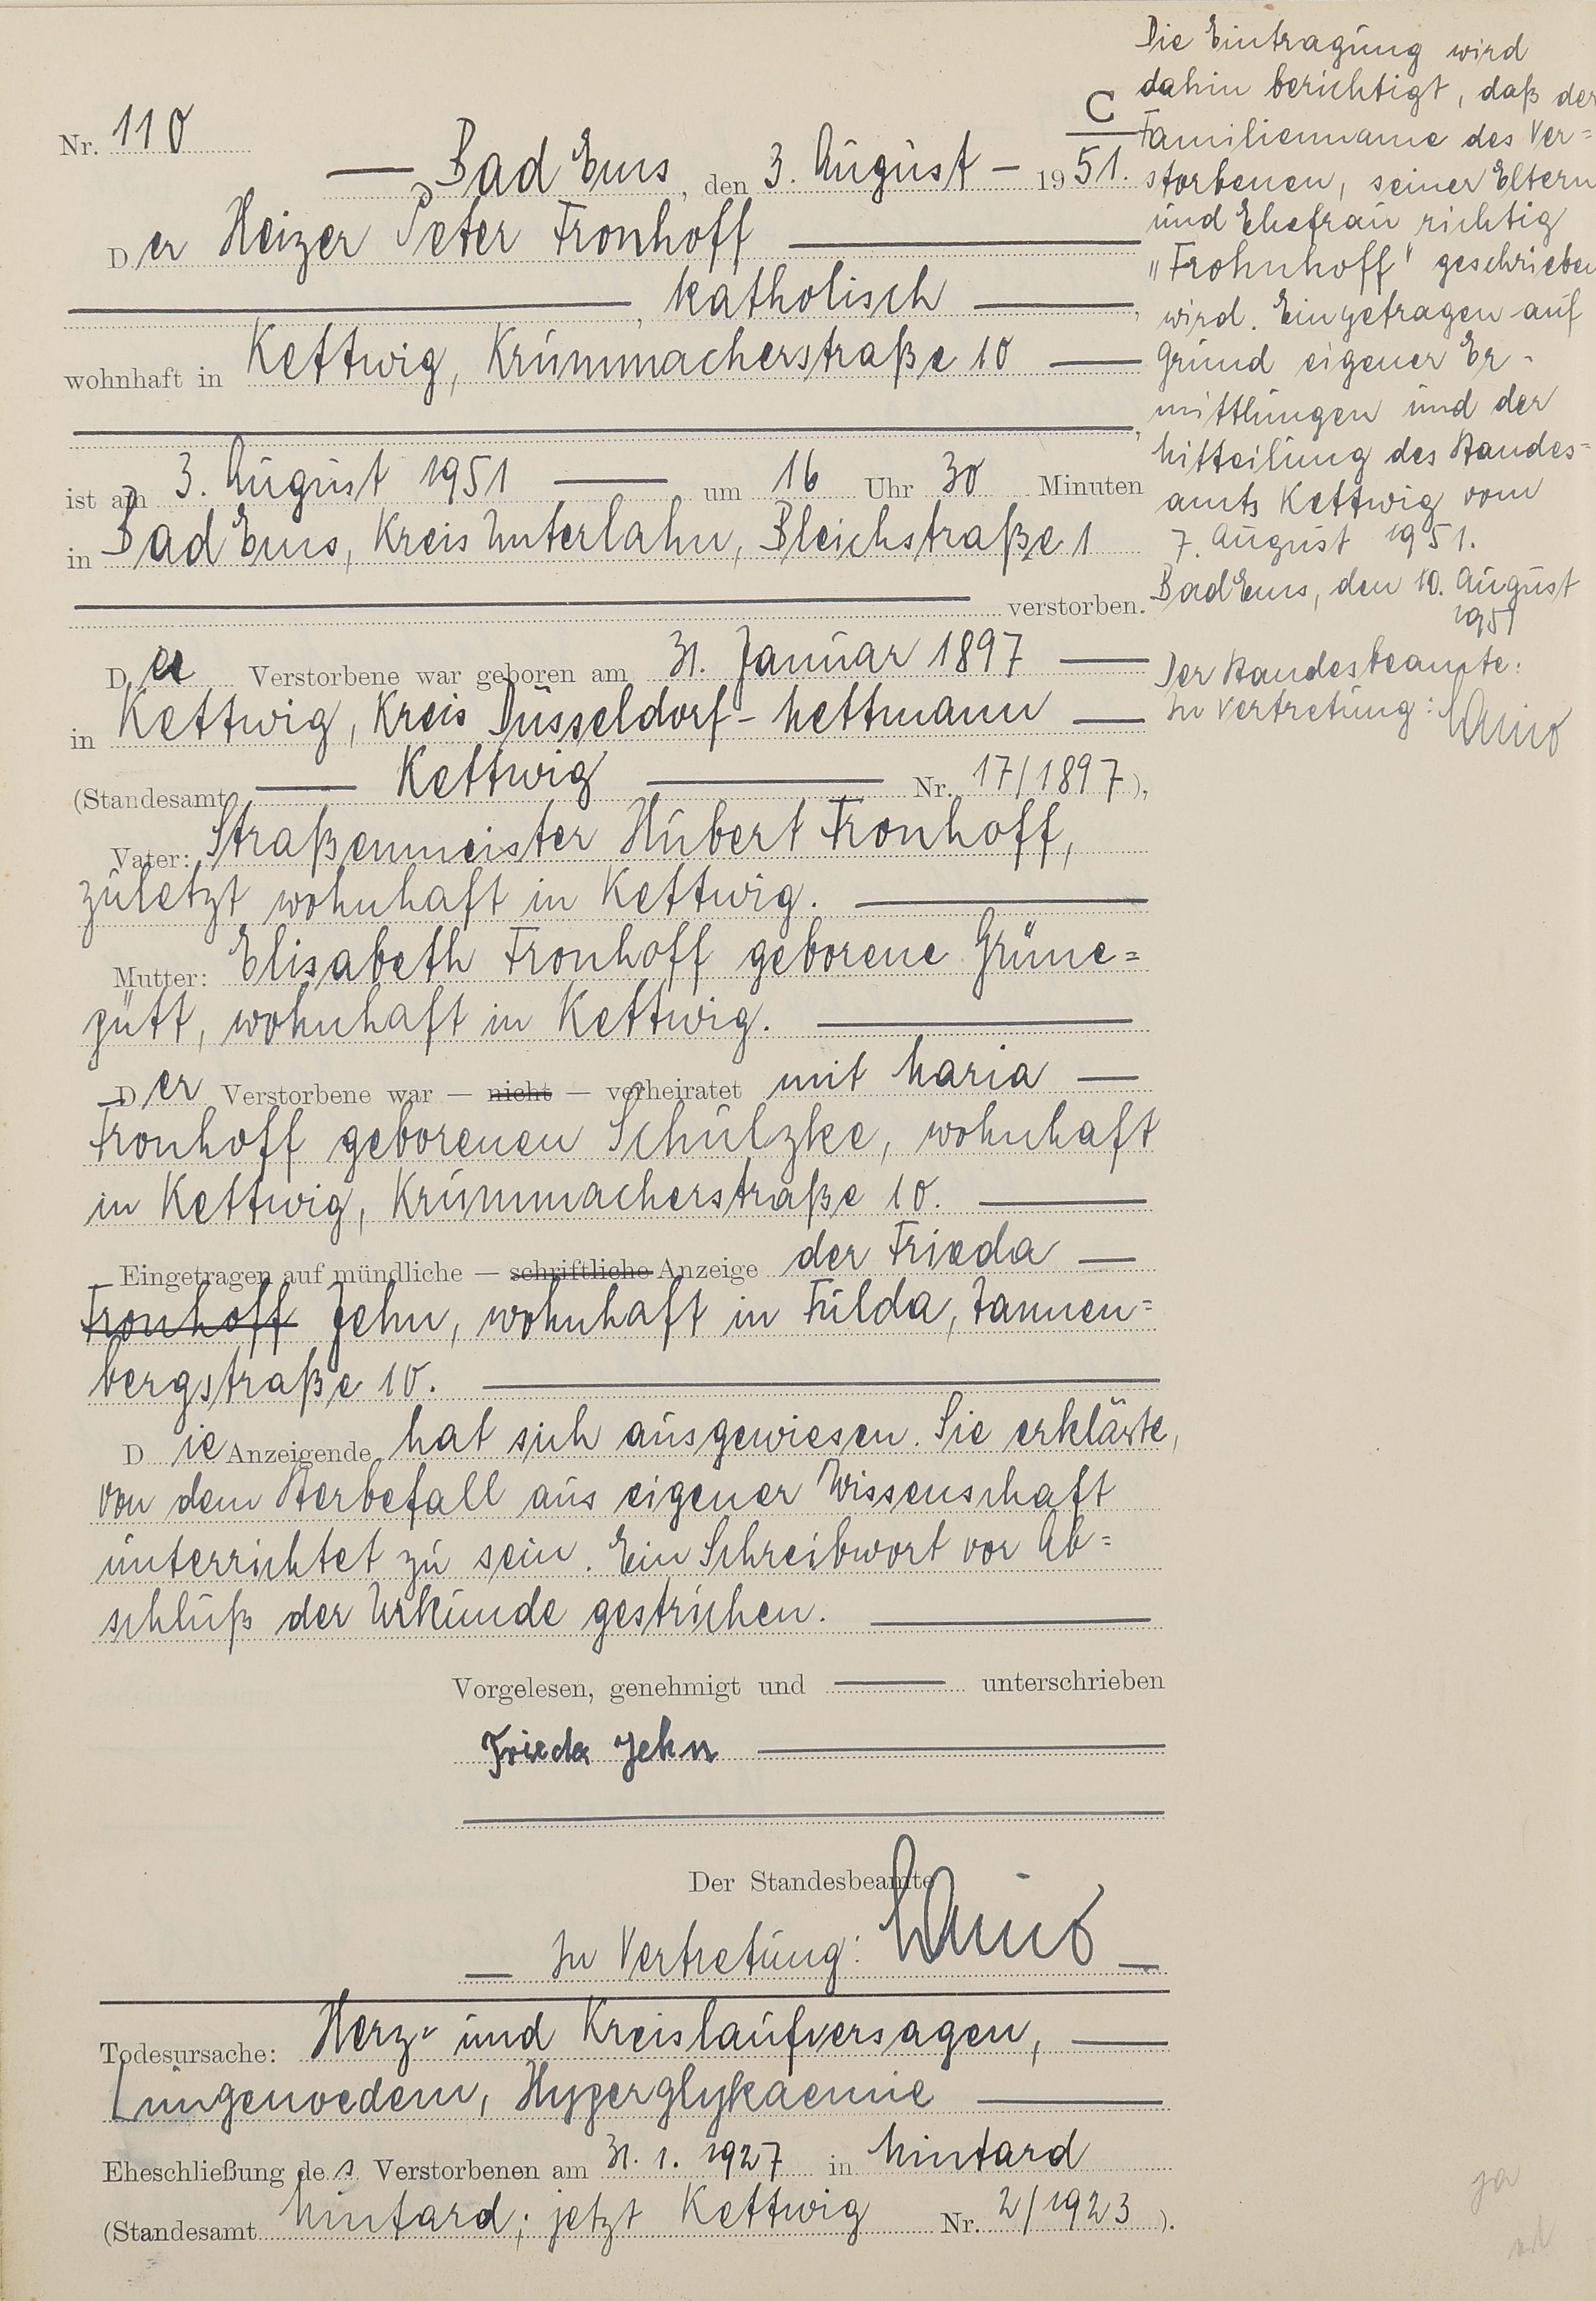 Nr. 110
C
— Bad Ems, den 3. August — 1951.
Der Heizer Peter Fronhoff
, katholisch ,
wohnhaft in Kettwig, Krummacherstraße 10
,
ist am 3. August 1951 um 16 Uhr 30 Minuten
in Bad Ems, Kreis Unterlahn, Bleichstraße 1
verstorben.
Der Verstorbene war geboren am 31. Januar 1897
in Kettwig, Kreis Düsseldorf-Mettmann
(Standesamt Kettwig Nr. 17/1897),
Vater: Straßenmeister Hubert Fronhoff,
zuletzt wohnhaft in Kettwig.
Mutter: Elisabeth Fronhoff geborene Grüne=
gütt, wohnhaft in Kettwig.
Der Verstorbene war — nicht — verheiratet mit Maria
Fronhoff geborenen Schulzke, wohnhaft
in Kettwig, Krummacherstraße 10.
Eingetragen auf mündliche — schriftliche Anzeige der Frieda
Fronhoff Jehn, wohnhaft in Fulda, Tannen=
bergstraße 10.
Die Anzeigende hat sich ausgewiesen. Sie erklärte,
von dem Sterbefall aus eigener Wissenschaft
unterrichtet zu sein. Ein Schreibwort vor Ab=
schluß der Urkunde gestrichen.
Vorgelesen, genehmigt und unterschrieben
Frieda Jehn
Der Standesbeamte
In Vertretung:
Todesursache: Herz- und Kreislaufversagen,
Lungenoedem, Hyperglykaemie
Eheschließung des Verstorbenen am 31. 1. 1927 in Mintard
(Standesamt Mintard; jetzt Kettwig Nr. 2/1923).
Die Eintragung wird
dahin berichtigt, daß der
Familienname des Ver=
storbenen, seiner Eltern
und Ehefrau richtig
"Frohnhoff" geschrieben
wird. Eingetragen auf
Grund eigener Er-
mittlungen und der
Mitteilung des Standes=
amts Kettwig vom
7. August 1951.
Bad Ems, den 10. August
1951
Der Standesbeamte:
In Vertretung:
ja